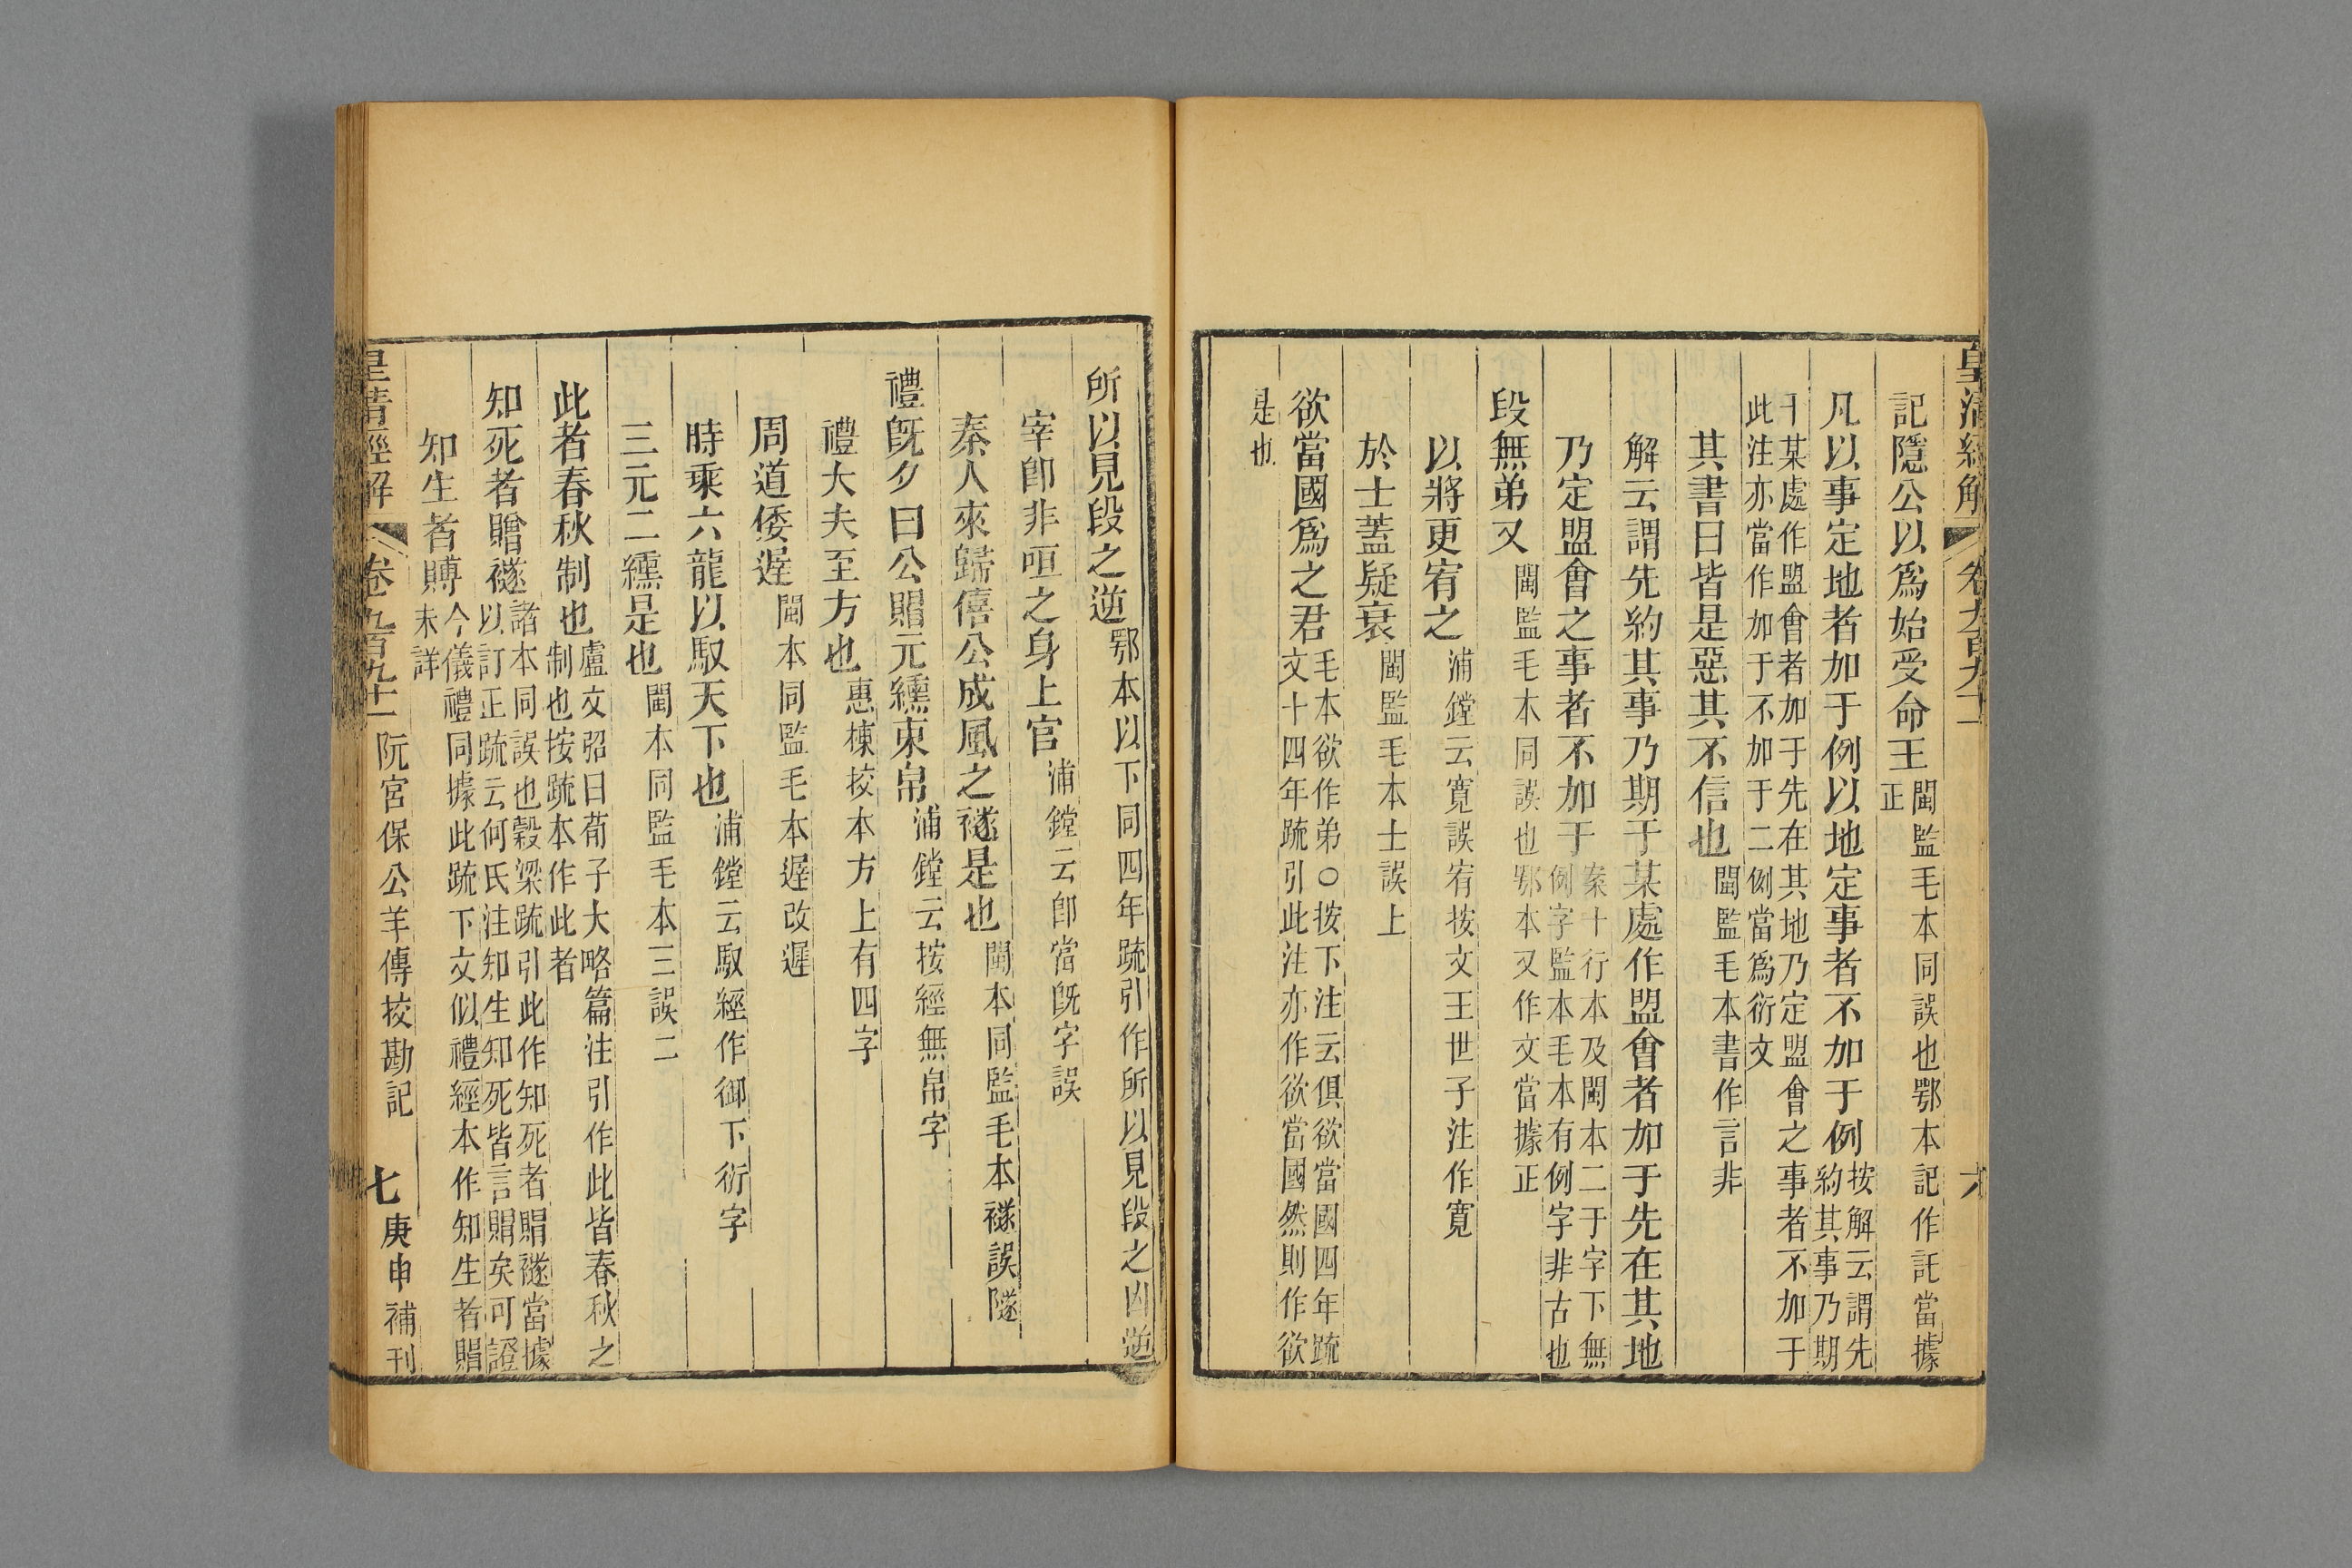 皇清經解 卷九百九十一 六
記隱公以爲始受命王閩監毛本同誤也鄂本記作託當據
正
凡以事定地者加于例以地定事者不加于例按解云謂先
約其事乃期
于某處作盟會者加于先在其地乃定盟會之事者不加于
此注亦當作加于不加于二例當爲衍文
其書曰皆是惡其不信也閩監毛本書作言非
解云謂先約其事乃期于某處作盟會者加于先在其地
乃定盟會之事者不加于案十行本及閩本二于字下無
例字監本毛本有例字非古也
段無弟又閩監毛本同誤也鄂本又作文當據正
以將更宥之浦鏜云寬誤宥按文王世子注作寬
於士蓋疑衰閩監毛本士誤上
欲當國爲之君毛本欲作弟〇按下注云俱欲當國四年疏
文十四年疏引此注亦作欲當國然則作欲
是也
所以見段之逆鄂本以下同四年疏引作所以見段之凶逆
宰卽非咺之身上官浦鏜云卽當旣字誤
秦人來歸僖公成風之襚是也閩本同監毛本襚誤隧
禮旣夕曰公賵元纁束帛浦鏜云按經無帛字
禮大夫至方也惠棟挍本方上有四字
周道倭遟閩本同監毛本遟改遲
時乘六龍以馭天下也浦鏜云馭經作御下衍字
三元二纁是也閩本同監毛本三誤二
此者春秋制也盧文弨曰荀子大略篇注引作此皆春秋之
制也按疏本作此者
知死者贈襚諸本同誤也穀梁疏引此作知死者賵襚當據
以訂正疏云何氏注知生知死皆言賵矣可證
知生者賻今儀禮同據此疏下文似禮經本作知生者賵
未詳
皇清經解 卷九百九十一 阮宮保公羊傳挍勘記 七 庚申補刊